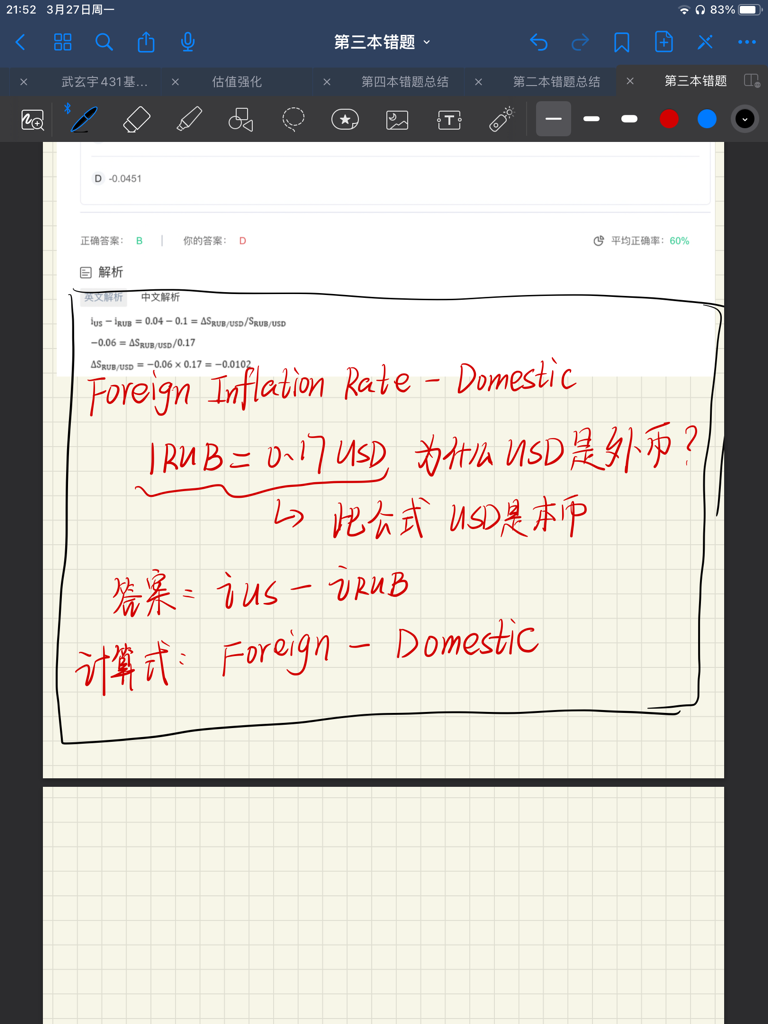 21:52 3月27日周一 83%
第三本错题
武玄宇431基... 估值强化 第四本错题总结 第二本错题总结 第三本错题
D -0.0451
正确答案: B 你的答案: D 平均正确率: 60%
解析
英文解析 中文解析
i_US − i_RUB = 0.04 − 0.1 = ΔS_RUB/USD/S_RUB/USD
−0.06 = ΔS_RUB/USD/0.17
ΔS_RUB/USD = −0.06 × 0.17 = −0.0102
Foreign Inflation Rate - Domestic
1RUB = 0.17 USD 为什么 USD是外币?
↳ 此公式 USD是本币
答案: iUS - iRUB
计算式: Foreign - Domestic